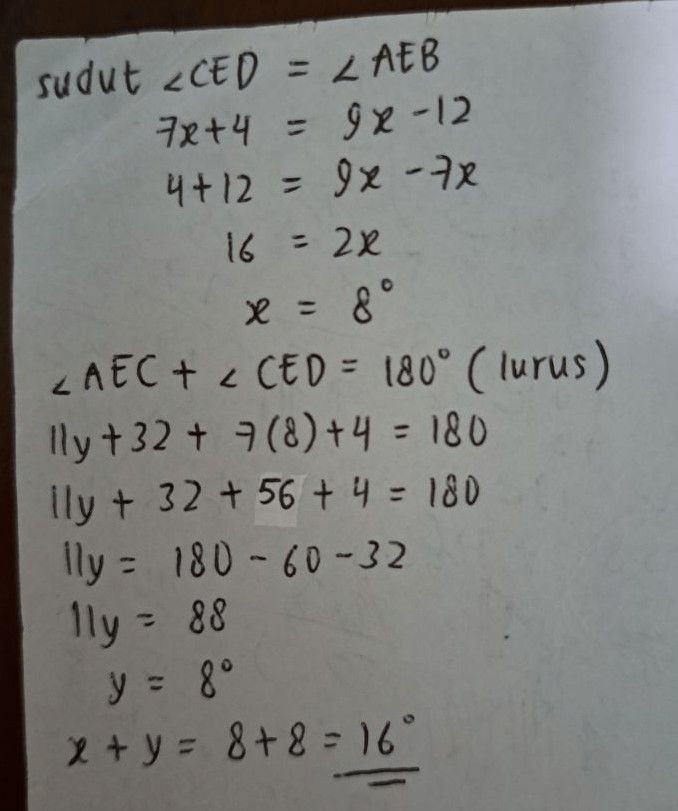 sudut ∠CED = ∠AEB
7x+4 = 9x-12
4+12 = 9x-7x
16 = 2x
x = 8°
∠AEC + ∠CED = 180° (lurus)
11y+32 + 7(8)+4 = 180
11y + 32 + 56 + 4 = 180
11y = 180 - 60 - 32
11y = 88
y = 8°
x + y = 8+8 = 16°